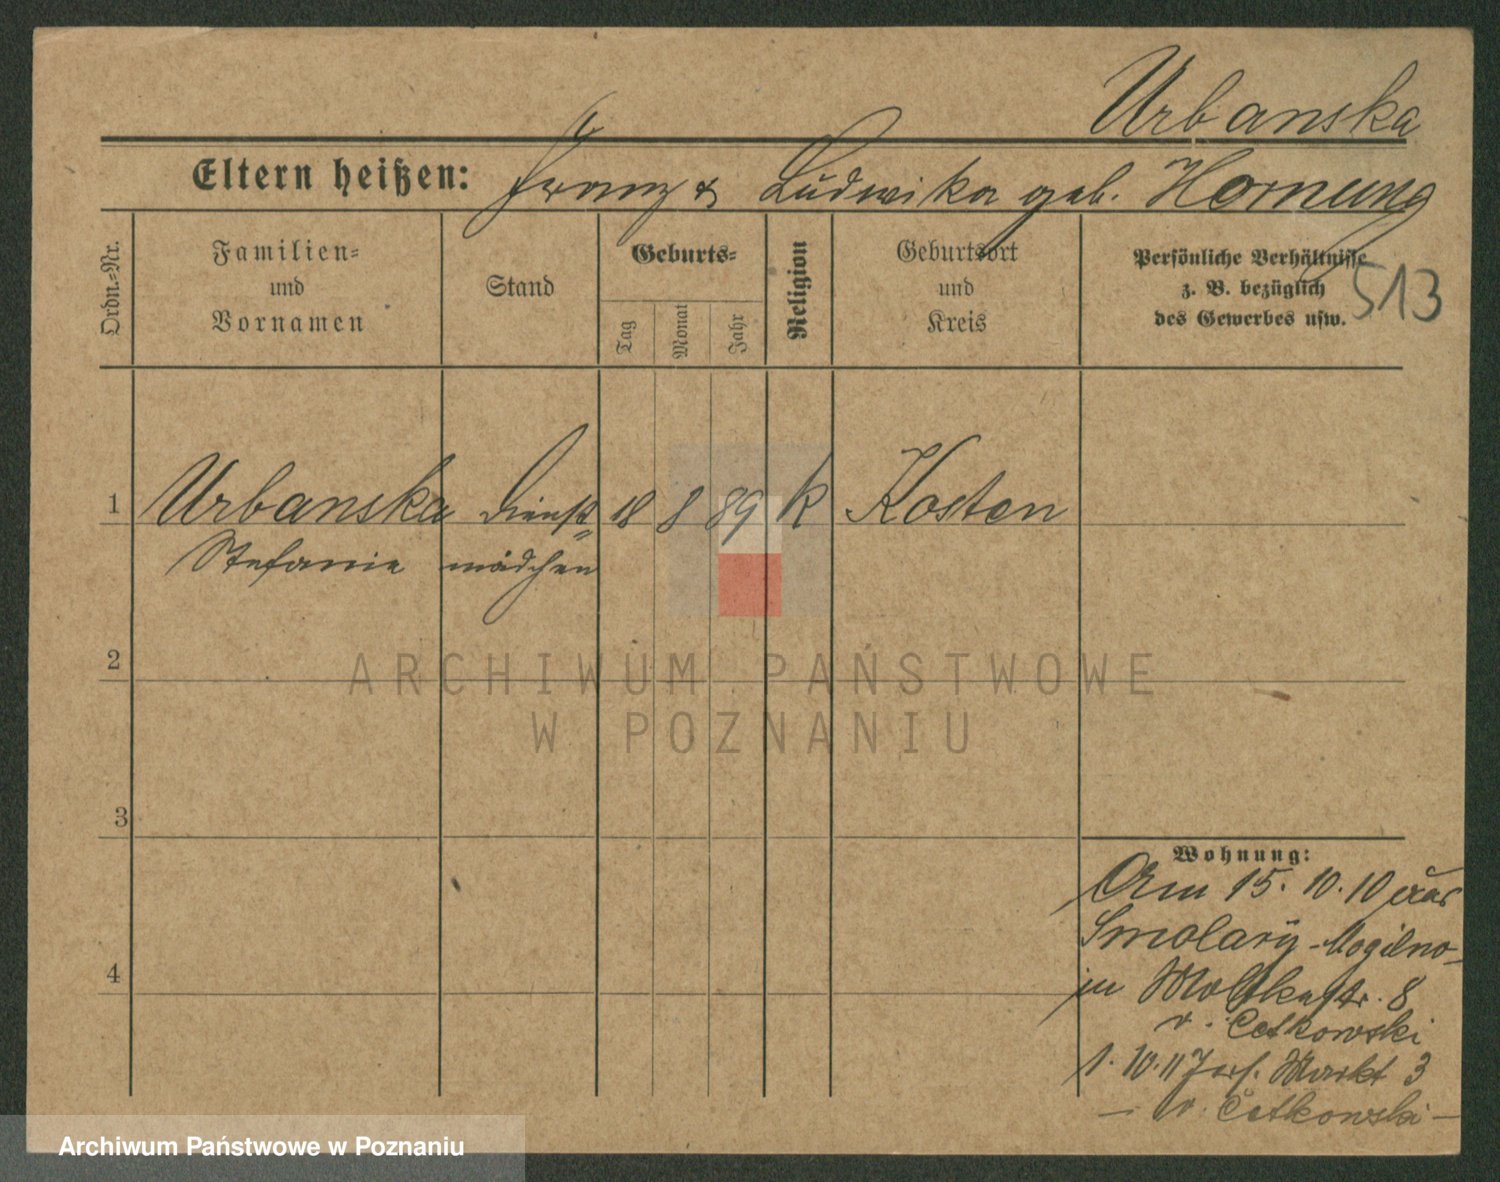 Urbanska
Eltern heißen: Franz & Ludwika geb. Hornung
Ordn.-Nr.
Familien-
und
Vornamen
Stand
Geburts-
Tag
Monat
Jahr
Religion
Geburtsort
und
Kreis
Persönliche Verhältnisse
z. B. bezüglich
des Gewerbes usw.
513
1 Urbanska Dienst= 18 8 89 k Kosten
Stefanie mädchen
2
3
4
Wohnung:
Am 15. 10. 10 aus
Smolary - Mogilno
in Moltkestr. 8
v. Cetkowski
1. 10. 11 Markt 3
— v. Cetkowski —
ARCHIWUM PAŃSTWOWE
W POZNANIU
Archiwum Państwowe w Poznaniu